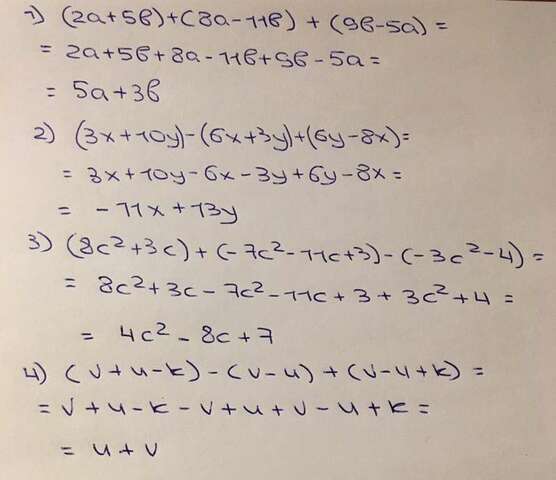 1) (2a+5в)+(8a-11в) + (9в-5a) =
= 2a+5в+8a-11в+9в-5a=
= 5a+3в
2) (3x+10y)-(6x+3y)+(6y-8x)=
= 3x+10y-6x-3y+6y-8x=
= -11x+13y
3) (8c²+3c) + (-7c²-11c+3)-(-3c²-4) =
= 8c²+3c-7c²-11c+3+3c²+4=
= 4c²-8c+7
4) (v+u-k)-(v-u)+(v-u+k) =
= v+u-k-v+u+v-u+k=
= u+v